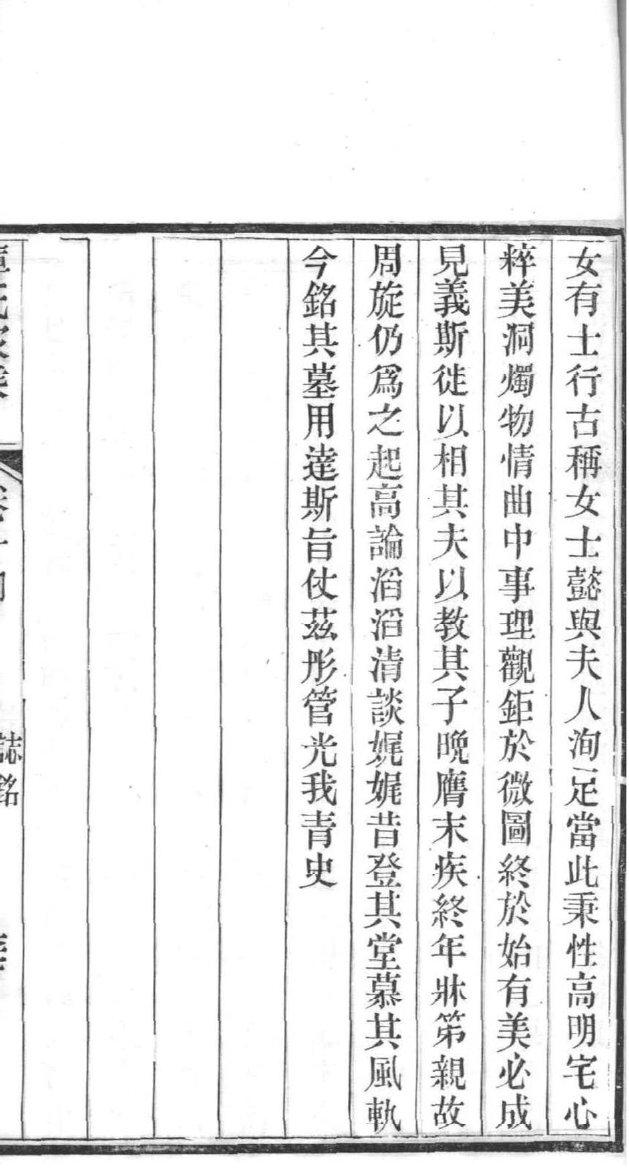 女有士行古稱女士懿與夫人洵足當此秉性高明宅心
粹美洞燭物情曲中事理觀鉅於微圖終於始有美必成
見義斯徙以相其夫以教其子晩膺末疾終年牀笫親故
周旋仍爲之起高論滔滔清談娓娓昔登其堂慕其風軌
今銘其墓用達斯旨仗茲彤管光我青史
誌銘